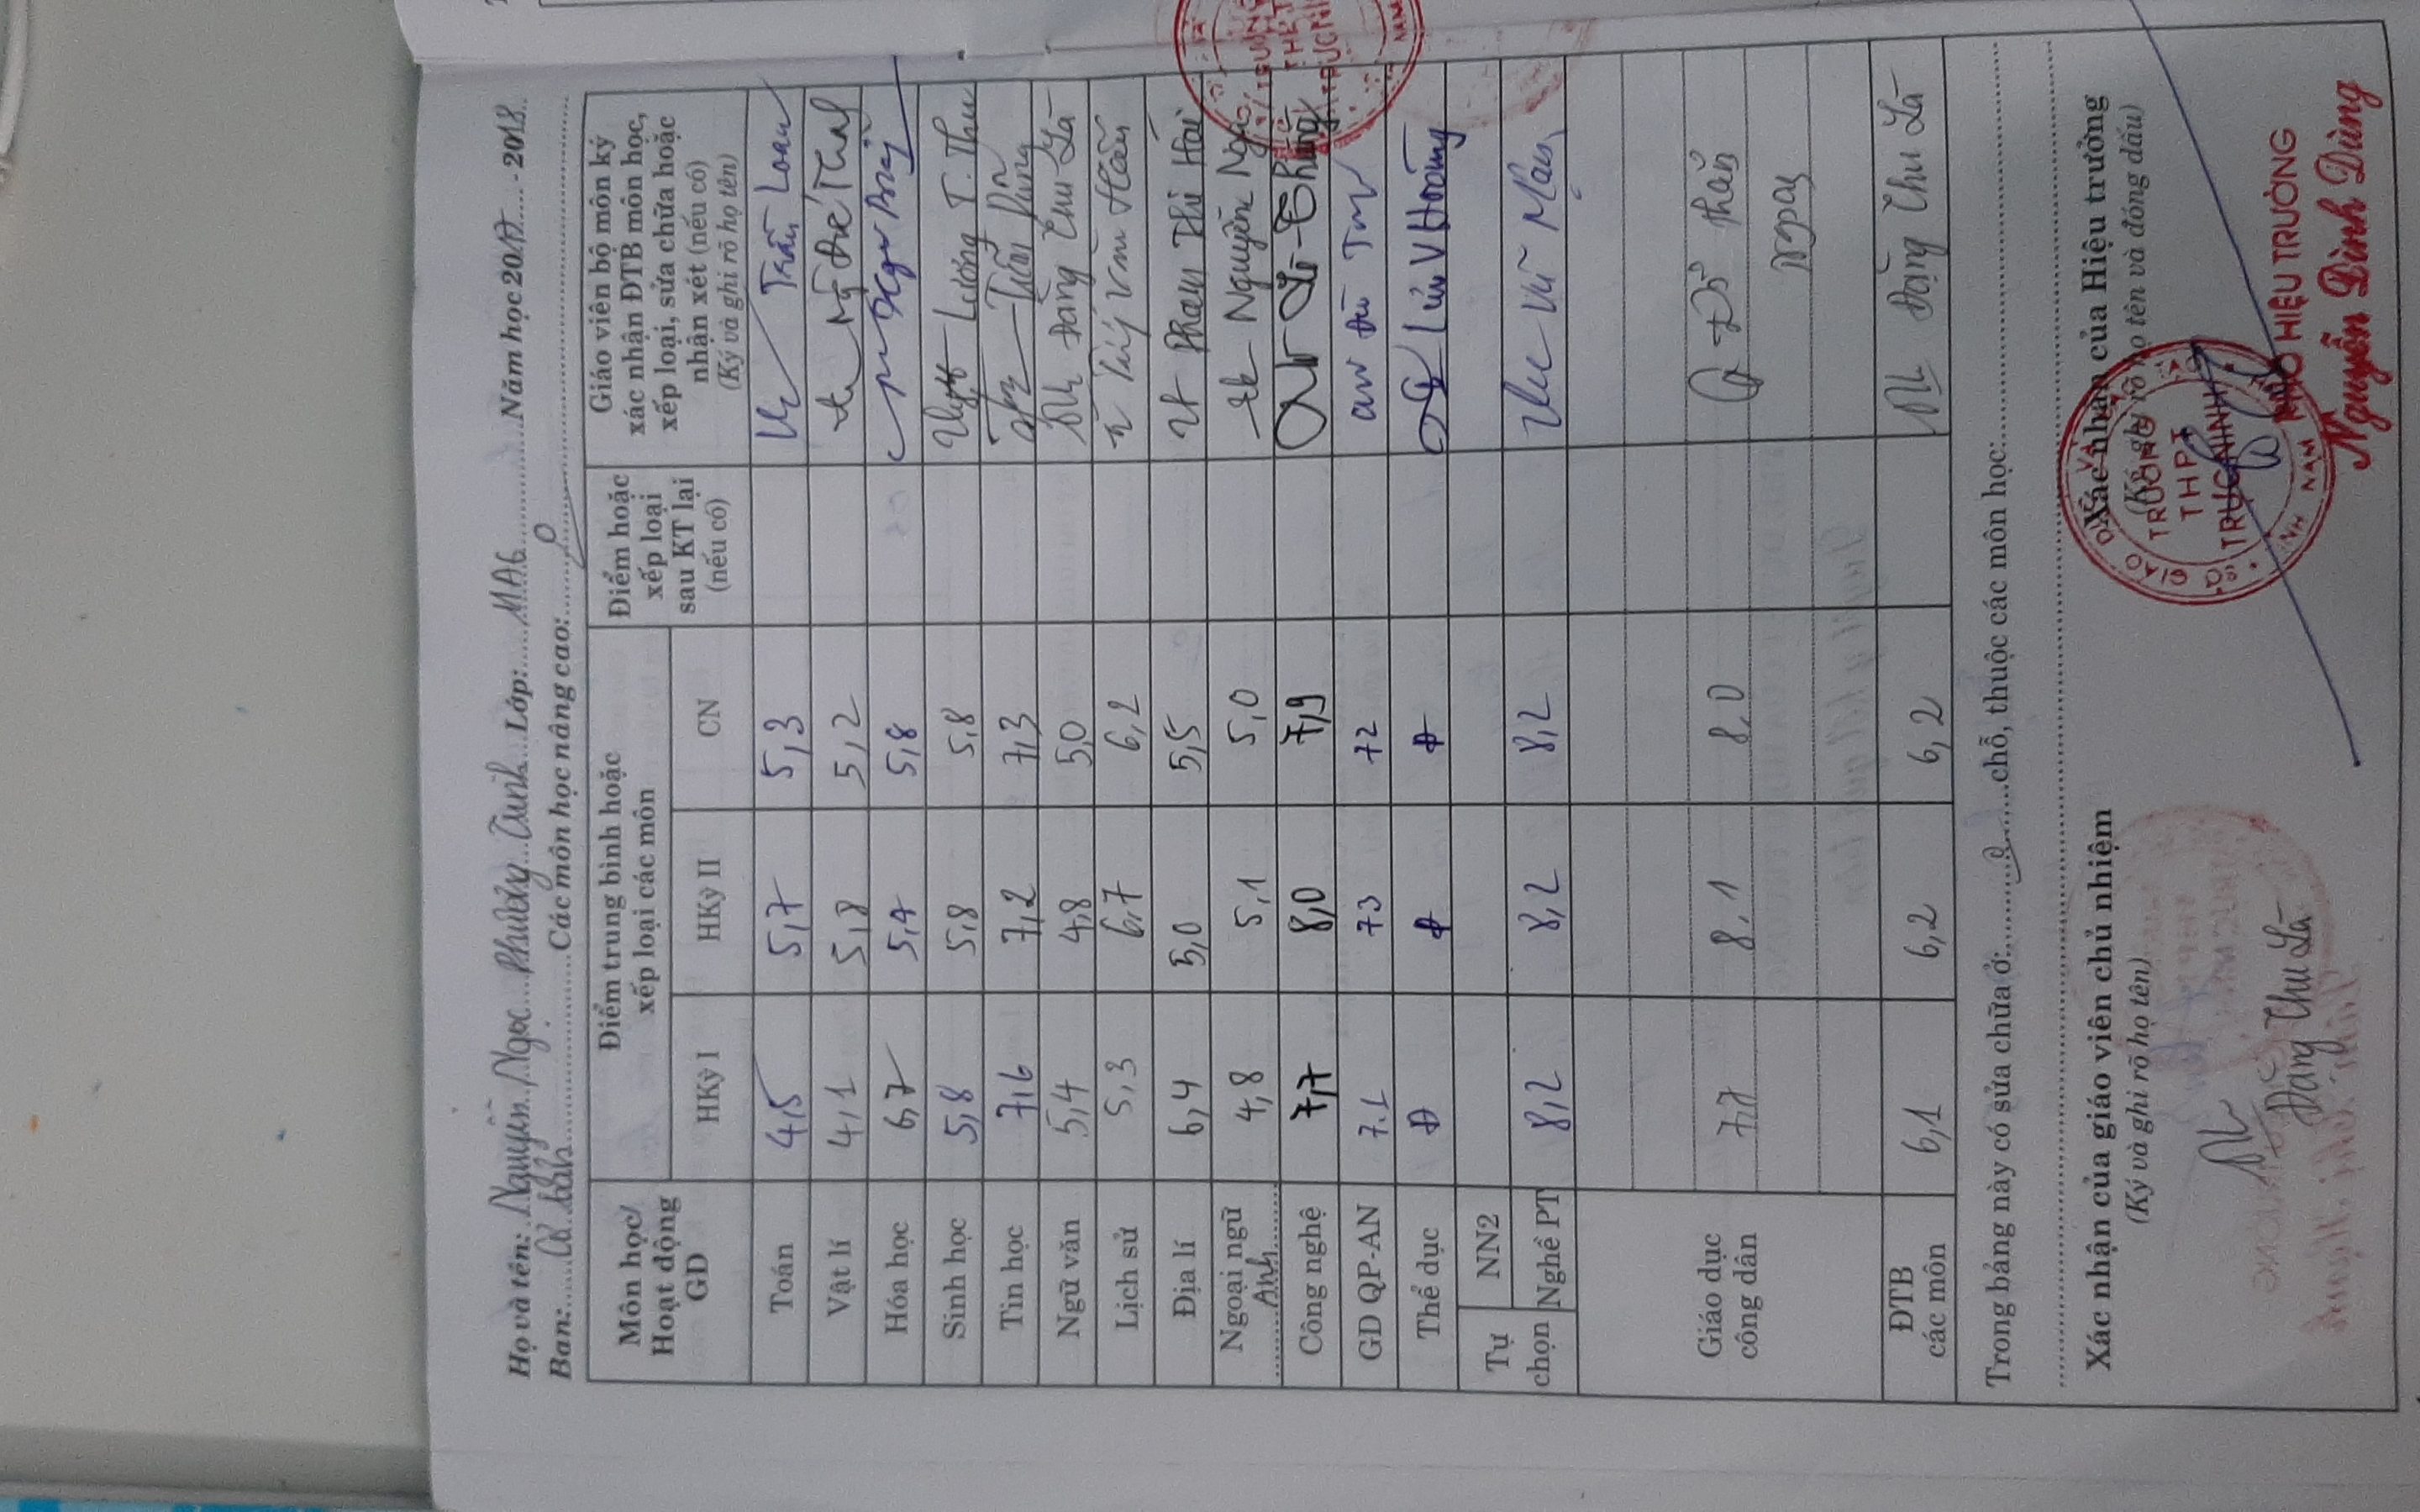 Họ và tên: Nguyễn Ngọc Phương Trinh Lớp: 11A6 Năm học 2017 - 2018
Ban: Cơ bản Các môn học nâng cao: 0
Môn học/ Hoạt động GD
Điểm trung bình hoặc xếp loại các môn
Điểm hoặc xếp loại sau KT lại (nếu có)
Giáo viên bộ môn ký xác nhận ĐTB môn học, xếp loại, sửa chữa hoặc nhận xét (nếu có)
(Ký và ghi rõ họ tên)
HKỳ I HKỳ II CN
Toán 4,5 5,7 5,3 Trần Loan
Vật lí 4,1 5,8 5,2
Hóa học 6,7 5,4 5,8
Sinh học 5,8 5,8 5,8 Lương T. Thu
Tin học 7,6 7,2 7,3
Ngữ văn 5,4 4,8 5,0 Đặng Thu Hà
Lịch sử 5,3 6,7 6,2
Địa lí 6,4 5,0 5,5 Phạm Thị Hải
Ngoại ngữ Anh 4,8 5,1 5,0 Nguyễn Nga
Công nghệ 7,7 8,0 7,9
GD QP-AN 7.1 73 72
Thể dục Đ Đ Đ
Tự chọn NN2
Nghề PT 8,2 8,2 8,2
Giáo dục công dân 7,7 8,1 8,0 Đỗ
ĐTB các môn 6,1 6,2 6,2 Đặng Thu Hà
Trong bảng này có sửa chữa ở: 0 chỗ, thuộc các môn học:
Xác nhận của giáo viên chủ nhiệm
(Ký và ghi rõ họ tên)
Đặng Thu Hà
Xác nhận của Hiệu trưởng
(Ký, ghi rõ họ tên và đóng dấu)
TRƯỜNG
THPT
TRỰC NINH
PHÓ HIỆU TRƯỞNG
Nguyễn Đình Dũng